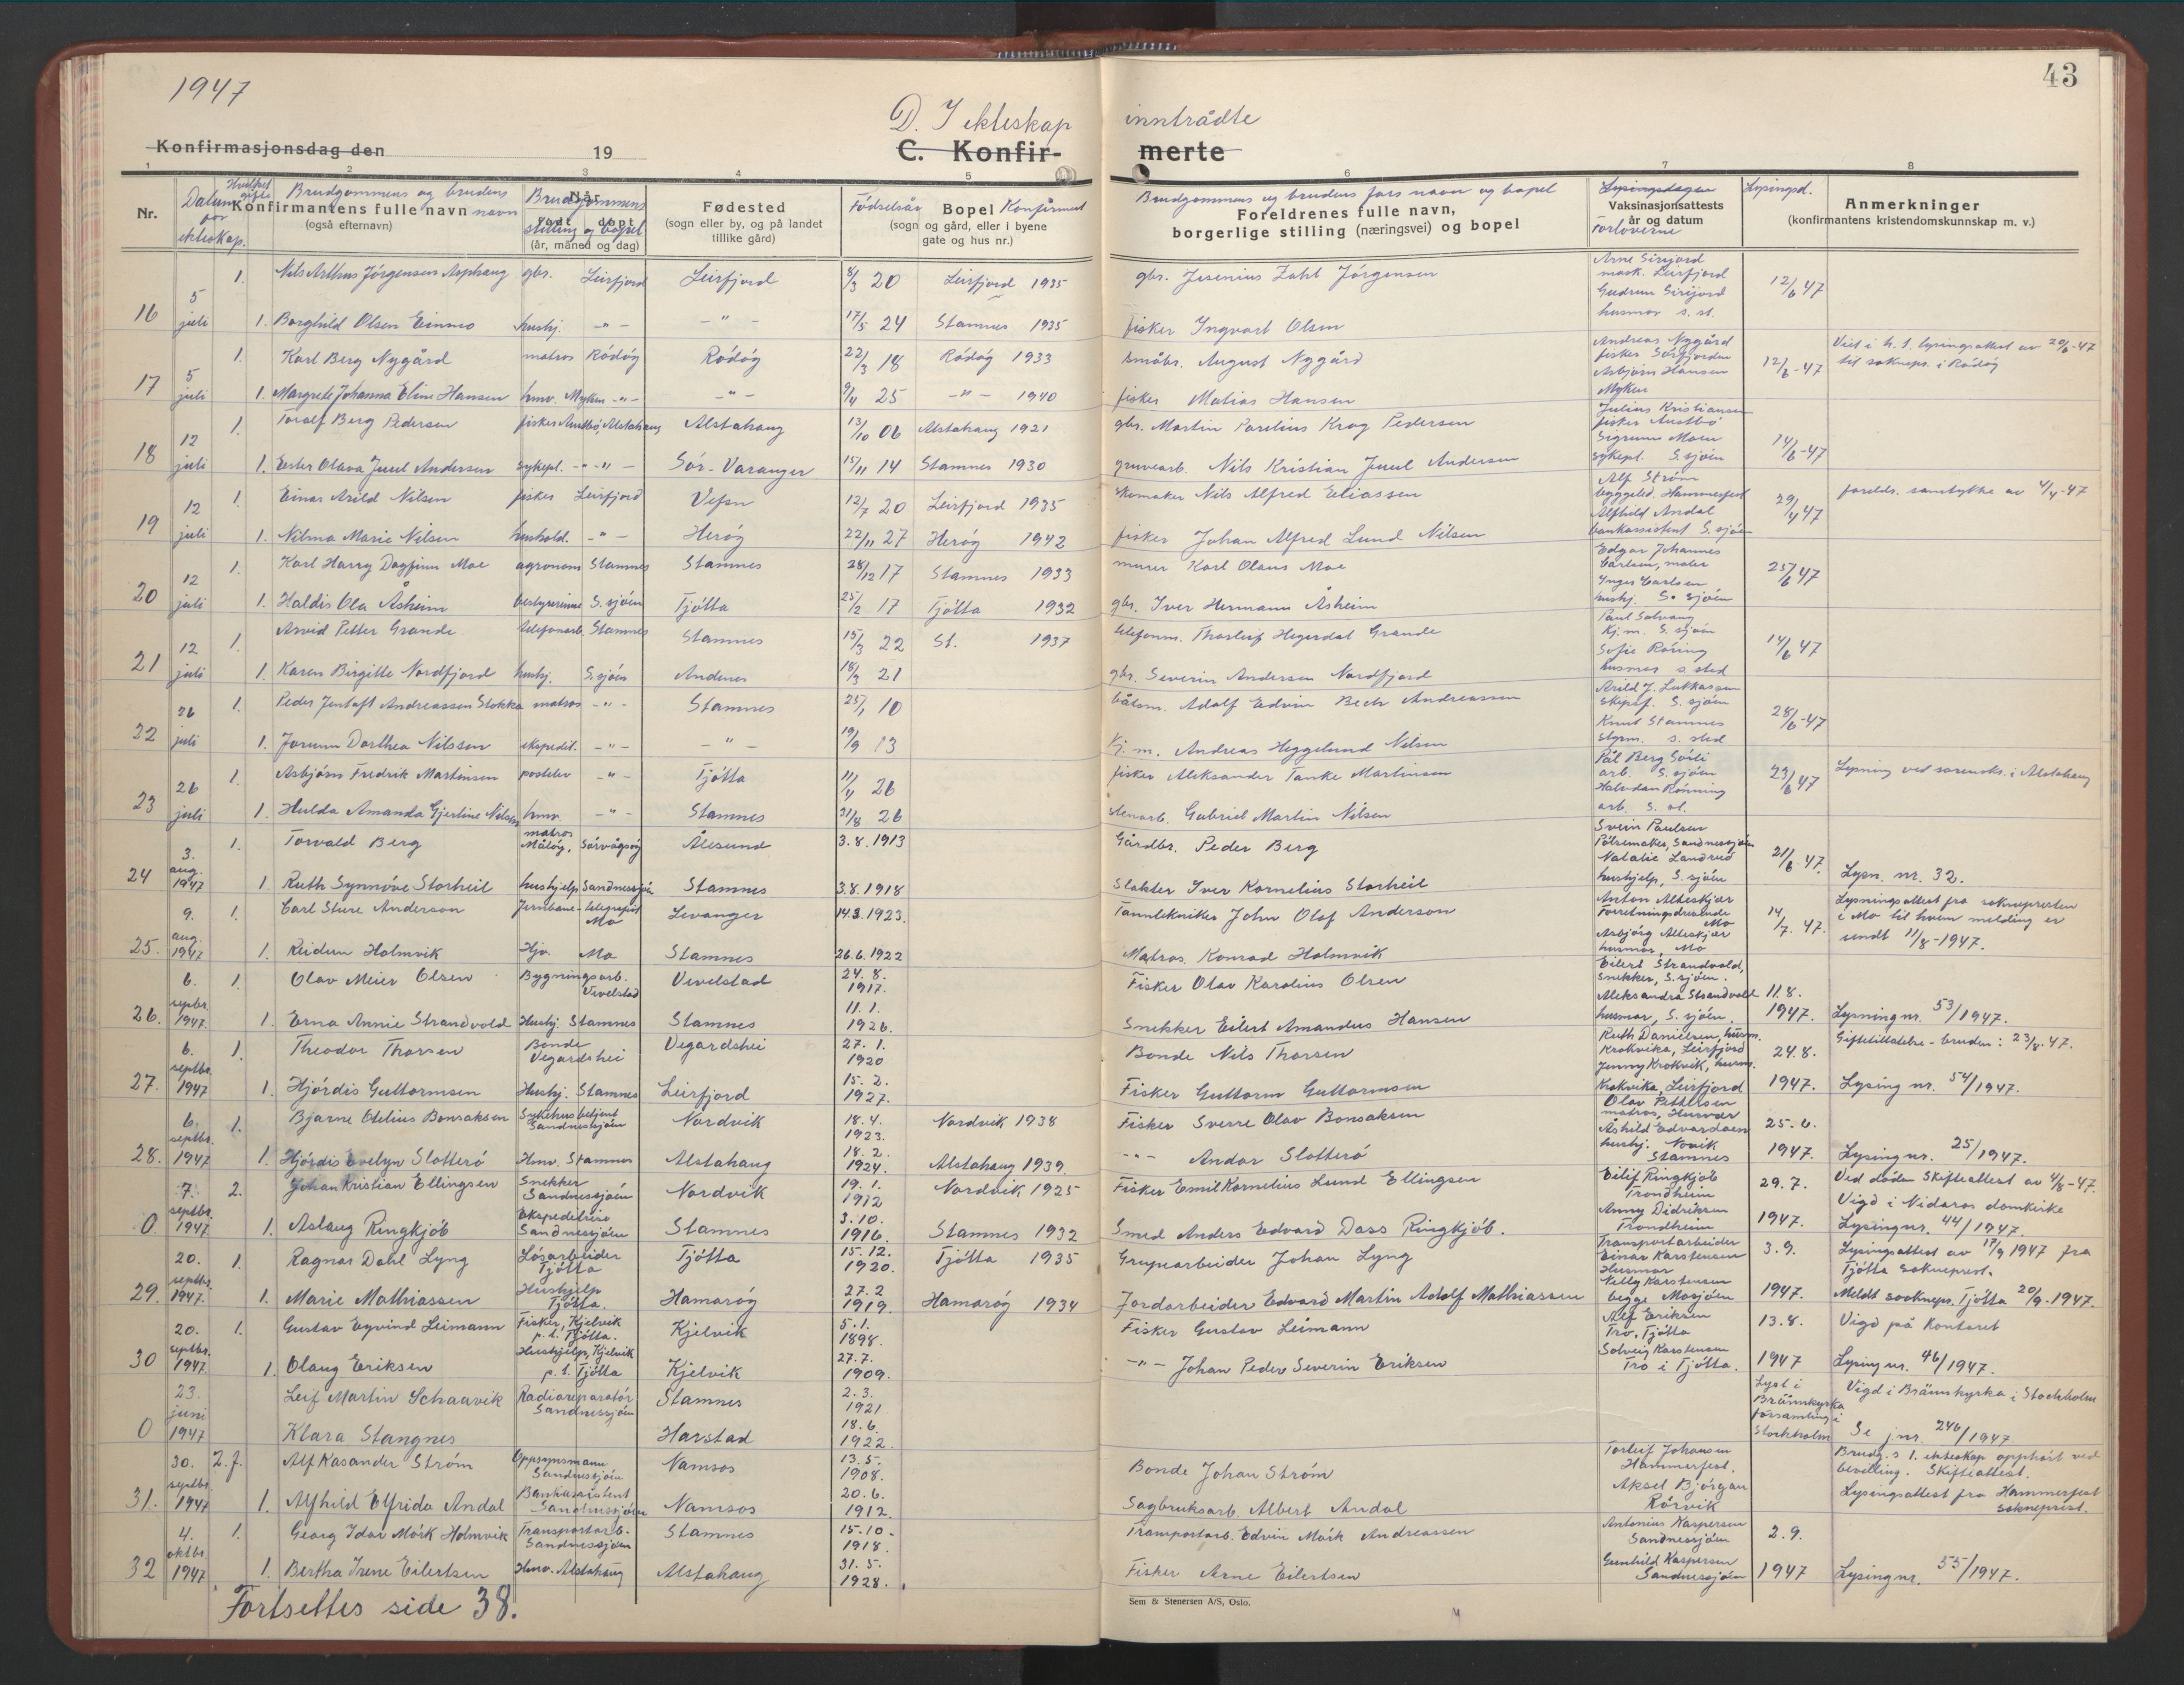 1947
43
D. I ekteskap inntrådte
Konfirmasjonsdag den 19 C. Konfir- merte
1 2 3 4 5 6 7 8
Nr. Datum for ekteskap. Hvilket gifte Brudgommens og brudens navn Konfirmantens fulle navn (også efternavn)
Brudgommens stilling og bopel Når født døpt (år, måned og dag)
Fødested (sogn eller by, og på landet tillike gård)
Fødselsår Bopel Konfirmert (sogn og gård, eller i byene gate og hus nr.)
Brudgommens og brudens fars navn og bopel Foreldrenes fulle navn, borgerlige stilling (næringsvei) og bopel
Lysingsdagen Vaksinasjonsattests år og datum Forloverne
Lysingsd. Anmerkninger (konfirmantens kristendomskunnskap m. v.)
16 5 juli 1. Nils Arthur Jörgensen Asphaug gbr. Leirfjord Leirfjord 8/3 20 Leirfjord 1935 gbr. Jesenius Zahl Jörgensen Arne Sirijord mask. Leirfjord 12/6 47
1. Borghild Olsen Einmo hushj. -"- -"- 17/5 24 Stamnes 1935 fisker Ingvart Olsen Gudrun Sirijord husmor s. st.
17 5 juli 1. Karl Berg Nygård matros Rödöy Rödöy 22/3 18 Rödöy 1933 småbr. August Nygård Andreas Nygård fisker Sörfjorden 12/6-47 Viet i h. t. lysingsattest av 20/6-47 til soknepr. i Rödöy
1. Margrete Johanna Eline Hansen hmv. Myken -"- -"- 9/4 25 -"- 1940 fisker Matias Hansen Asbjörn Hansen Myken
18 12 juli 1. Toralf Berg Pedersen fisker Austbö, Alstahaug Alstahaug 13/10 06 Alstahaug 1921 gbr. Martin Parelius Krog Pedersen Julius Kristiansen fisker Austbö 14/6-47
1. Ester Olava Juul Andersen sykepl. -"-"- Sör-Varanger 15/11 14 Stamnes 1930 gruvearb. Nils Kristian Juul Andersen Sigrunn Moen sykepl. S.sjöen
19 12 juli 1. Einar Arild Nilsen fisker Leirfjord Vefsn 12/7 20 Leirfjord 1935 skomaker Nils Alfred Eliassen Alf Ström byggeled. Hammerfest 29/4 47 forelds. samtykke av 4/4-47
1. Nilma Marie Nilsen hushold. -"- Heröy 22/11 27 Heröy 1942 fisker Johan Alfred Lund Nilsen Alfhild Andal bankassistent S. sjöen
20 12 juli 1. Karl Harry Dagfinn Moe agronom Stamnes Stamnes 28/12 17 Stamnes 1933 murer Karl Olaus Moe Edgar Johannes Carlsen, maler 25/6 47
1. Haldis Ola Åsheim bestyrerinne S. sjöen Tjötta 25/2 17 Tjötta 1932 gbr. Iver Hermann Åsheim Inger Carlsen hushj. S. sjöen
21 12 juli 1. Arvid Petter Grande telefonarb. Stamnes Stamnes 15/3 22 St. 1937 telefonm. Thorleif Hegerdal Grande Paul Solvang Kj.m. S. sjöen 14/6 47
1. Karen Birgitte Nordfjord hushj. S.sjöen Andenes 18/3 21 gbr. Severin Andersen Nordfjord Sofie Röring husmor s. sted
22 26 juli 1. Peder Jentoft Andreassen Stokka matros -"- Stamnes 25/1 10 båtsm. Adolf Edvin Bech Andreassen Arild J. Lukkassen skipsf. S. sjöen 28/6-47
1. Jorunn Dorthea Nilssen ekspedit. -"- -"- 19/9 13 Kj.m. Andreas Heggelund Nilsen Knut Stamnes styrm. s. sted
23 26 juli 1. Asbjörn Fredrik Martinsen postelev -"- Tjötta 11/4 26 fisker Aleksander Tanke Martinsen Pål Berg Sörli arb. S. sjöen 23/6 47 Lysning ved sorensk. i Alstahaug
1. Hulda Amanda Gjertine Nilsen hmv. -"- Stamnes 31/8 26 stenarb. Gabriel Martin Nilsen Halvdan Rönning arb. s. st.
24 3. aug. 1947 1. Torvald Berg matros Målöy, Sörvågsöy Ålesund 3.8.1913 Gårdbr. Peder Berg Svein Paulsen Pölsemaker, Sandnessjöen 21/6.47.
1. Ruth Synnöve Storheil hushjelp Sandnessjöen Stamnes 3.8.1918 Slakter Iver Kornelius Storheil Natalie Landrud hushjelp, S. sjöen Lysn. nr. 32.
25. 9. aug. 1947 1. Carl Sture Anderson Jernbane-telegrafist Mo Levanger 14.3.1923. Tanntekniker John Olof Anderson Anton Alteskjær Forretningsdrivende Mo 14/7. 47. Lysningsattest fra soknepresten i Mo til hvem melding er sendt 11/8-1947.
1. Reidun Holmvik Hjv. Mo Stamnes 26.6.1922 Matros Konrad Holmvik Asbjörg Alteskjær husmor, Mo
26. 6. septbr. 1947. 1. Olav Meier Olsen Bygningsarb. Vevelstad Vevelstad 24.8. 1917. Fisker Olav Karolius Olsen Eilert Strandvold, snekker, S.sjöen. 11.8. 1947.
1. Erna Annie Strandvold Hushj. Stamnes Stamnes 11.1. 1926. Snekker Eilert Amandus Hansen Aleksandra Strandvold husmor, S. sjöen. Lysning nr. 53/1947.
27. 6. septbr. 1947 1. Theodor Thorsen Bonde Vegardshei Vegardshei 27.1. 1920 Bonde Nils Thorsen Ruth Danielsen, husm. Krokvika, Leirfjord 24.8. 1947. Giftetillatelse - bruden: 23/8.47.
1. Hjördis Guttormsen Hushj. Stamnes Leirfjord 15.2. 1927. Fisker Guttorm Guttormsen Jenny Krokvik, husm. Krokvika, Leirfjord Lysing nr. 54/1947.
28. 6. septbr. 1947 1. Bjarne Otelius Bonsaksen Sykehusbetjent Sandnessjöen Nordvik 18.4. 1923. Nordvik 1938 Fisker Sverre Olav Bonsaksen Olav Pettersen matros, Husvær 25.6. 1947.
1. Hjördis Evelyn Slotterö Hmv. Stamnes Alstahaug 18.2. 1924. Alstahaug 1939. -"- Andor Slotterö Åshild Edvardsen hushj. Novik Stamnes Lysing nr. 25/1947.
0. 7. septbr. 1947 2. Johan Kristian Ellingsen Snekker Sandnessjöen Nordvik 19.1. 1912 Nordvik 1925 Fisker Emil Kornelius Lund Ellingsen Eilif Ringkjöb Trondheim 29.7. 1947. Ved döden Skifteattest av 4/8-47. Vigd i Nidaros domkirke
1. Aslaug Ringkjöb Ekspeditrise Sandnessjöen Stamnes 3.10. 1916. Stamnes 1932 Smed Anders Edvard Dass Ringkjöb. Anny Didriksen Trondheim Lysing nr. 44/1947.
29. 20. septbr. 1947. 1. Ragnar Dahl Lyng Lösarbeider Tjötta Tjötta 15.12. 1920. Tjötta 1935 Gruvearbeider Johan Lyng Transportarbeider Einar Karstensen 3.9. 1947. Lysingsattest av 17/9 1947 fra Tjötta sokneprest.
1. Marie Mathiassen Hushjelp Tjötta. Hamaröy 27.2 1919. Hamaröy 1934 Jordarbeider Edvard Martin Adolf Mathiassen Husmor Nelly Karstensen begge Mosjöen Meldt sockneps. Tjötta 20/9.1947.
30 20. septbr. 1947. 1. Gustav Eyvind Leimann Fisker, Kjelvik p.t. Tjötta. Kjelvik 5.1. 1898. Fisker Gustav Leimann Alf Eriksen Tro, Tjötta 13.8. 1947 Vigd på Kontoret
1. Olaug Eriksen Hushjelp, Kjelvik p.t. Tjötta Kjelvik 27.7. 1909. -"- Johan Peder Severin Eriksen Solveig Karstensen Tro i Tjötta. Lysing nr. 46/1947.
0 23. juni 1947 Leif Martin Schaavik Radioreparatör Sandnessjöen Stamnes 2.3. 1921 Lyst i Brännkyrka församling i Stockholm Vigd i Brännkyrka i Stockholm
Klara Stangnes Harstad 18.6. 1922. Se jnr. 246/1947
31. 30. septbr. 1947 2.f. Alf Kasander Ström Oppsynsmann Sandnessjöen Namsos 13.5. 1908. Bonde Johan Ström Torleif Johansen Hammerfest. Brudg.s 1. ekteskap opphört ved bevilling. Skifteattest.
1. Alfhild Elfrida Andal Bankassistent Sandnessjöen Namsos 20.6. 1912. Sagbruksarb. Albert Andal Aksel Bjørgan Rörvik Lysingsattest fra Hammerfest sokneprest.
32 4. oktbr. 1947 1. Georg Idar Mörk Holmvik Transportarb. Sandnessjöen Stamnes 15.10. 1918. Transportarb. Edvin Mörk Andreassen Antonius Kaspersen Sandnessjöen 2.9. 1947
1. Bertha Irene Eilertsen Hmv. Alstahaug Alstahaug 31.5. 1928. Fisker Arne Eilertsen Gunhild Kaspersen Sandnessjöen Lysing nr. 55/1947.
Fortsettes side 38.
Sem & Stenersen A/S, Oslo.